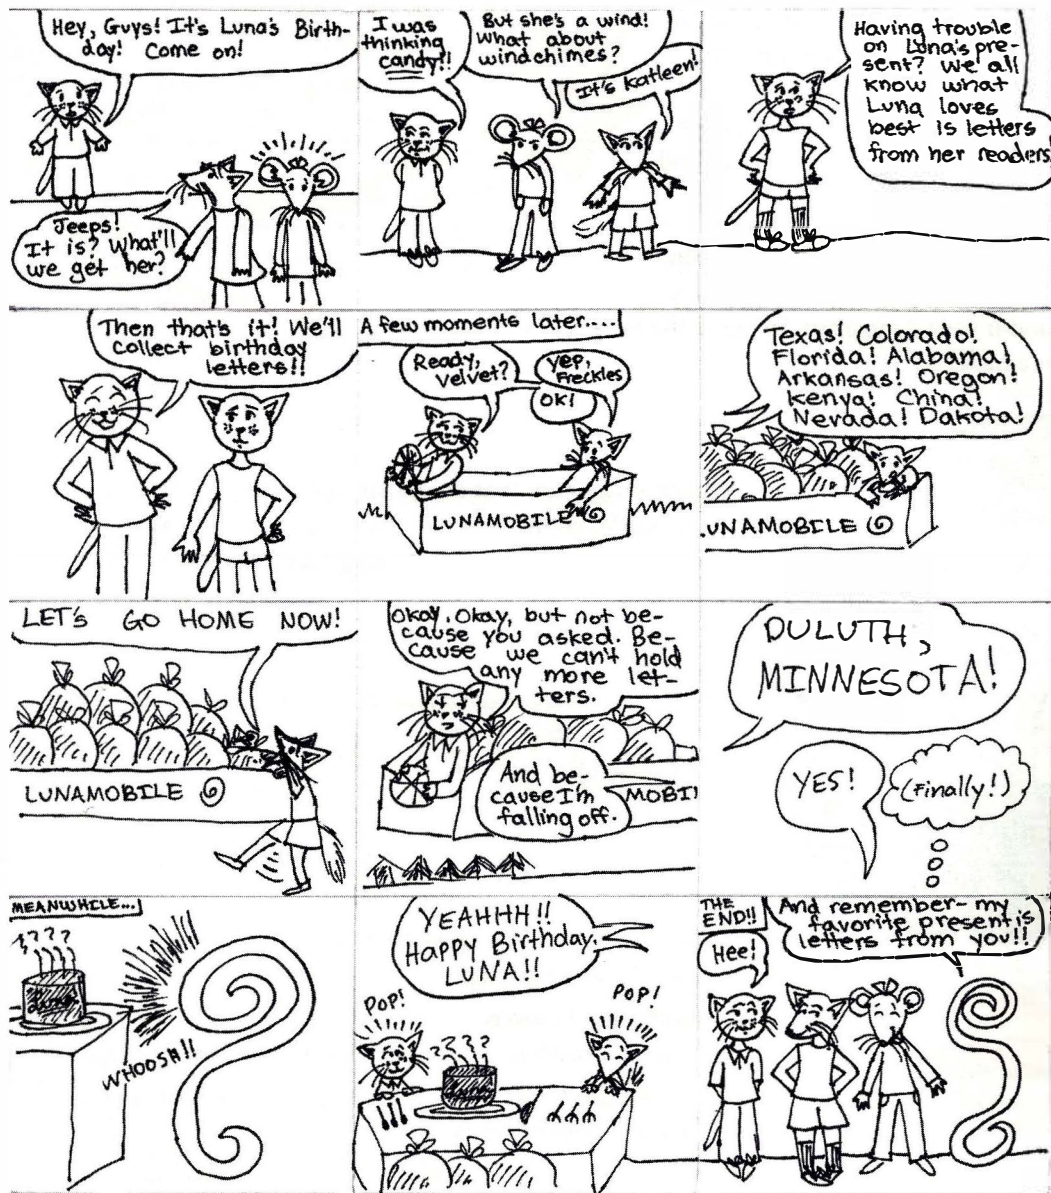 Hey, Guys! It's Luna's Birth-
day! Come on!
Jeeps!
It is? What'll
we get her?
I was
thinking
candy!!
But she's a wind!
What about
windchimes?
It's Katleen!
Having trouble
on Luna's pre-
sent? We all
know what
Luna loves
best is letters
from her readers
Then that's it! We'll
collect birthday
letters!!
A few moments later....
Ready,
Velvet?
Yep,
Freckles
OK!
LUNAMOBILE
Texas! Colorado!
Florida! Alabama!
Arkansas! Oregon!
Kenya! China!
Nevada! Dakota!
LUNAMOBILE
LET'S GO HOME NOW!
LUNAMOBILE
Okay. Okay, but not be-
cause you asked. Be-
cause we can't hold
any more let-
ters.
And be-
cause I'm
falling off.
MOBI
DULUTH,
MINNESOTA!
YES!
(Finally!)
MEANWHILE...
Luna
WHOOSH!!
YEAHHH!!
Happy Birthday,
LUNA!!
POP!
POP!
Luna
THE
END!!
Hee!
And remember- my
favorite present is
letters from you!!